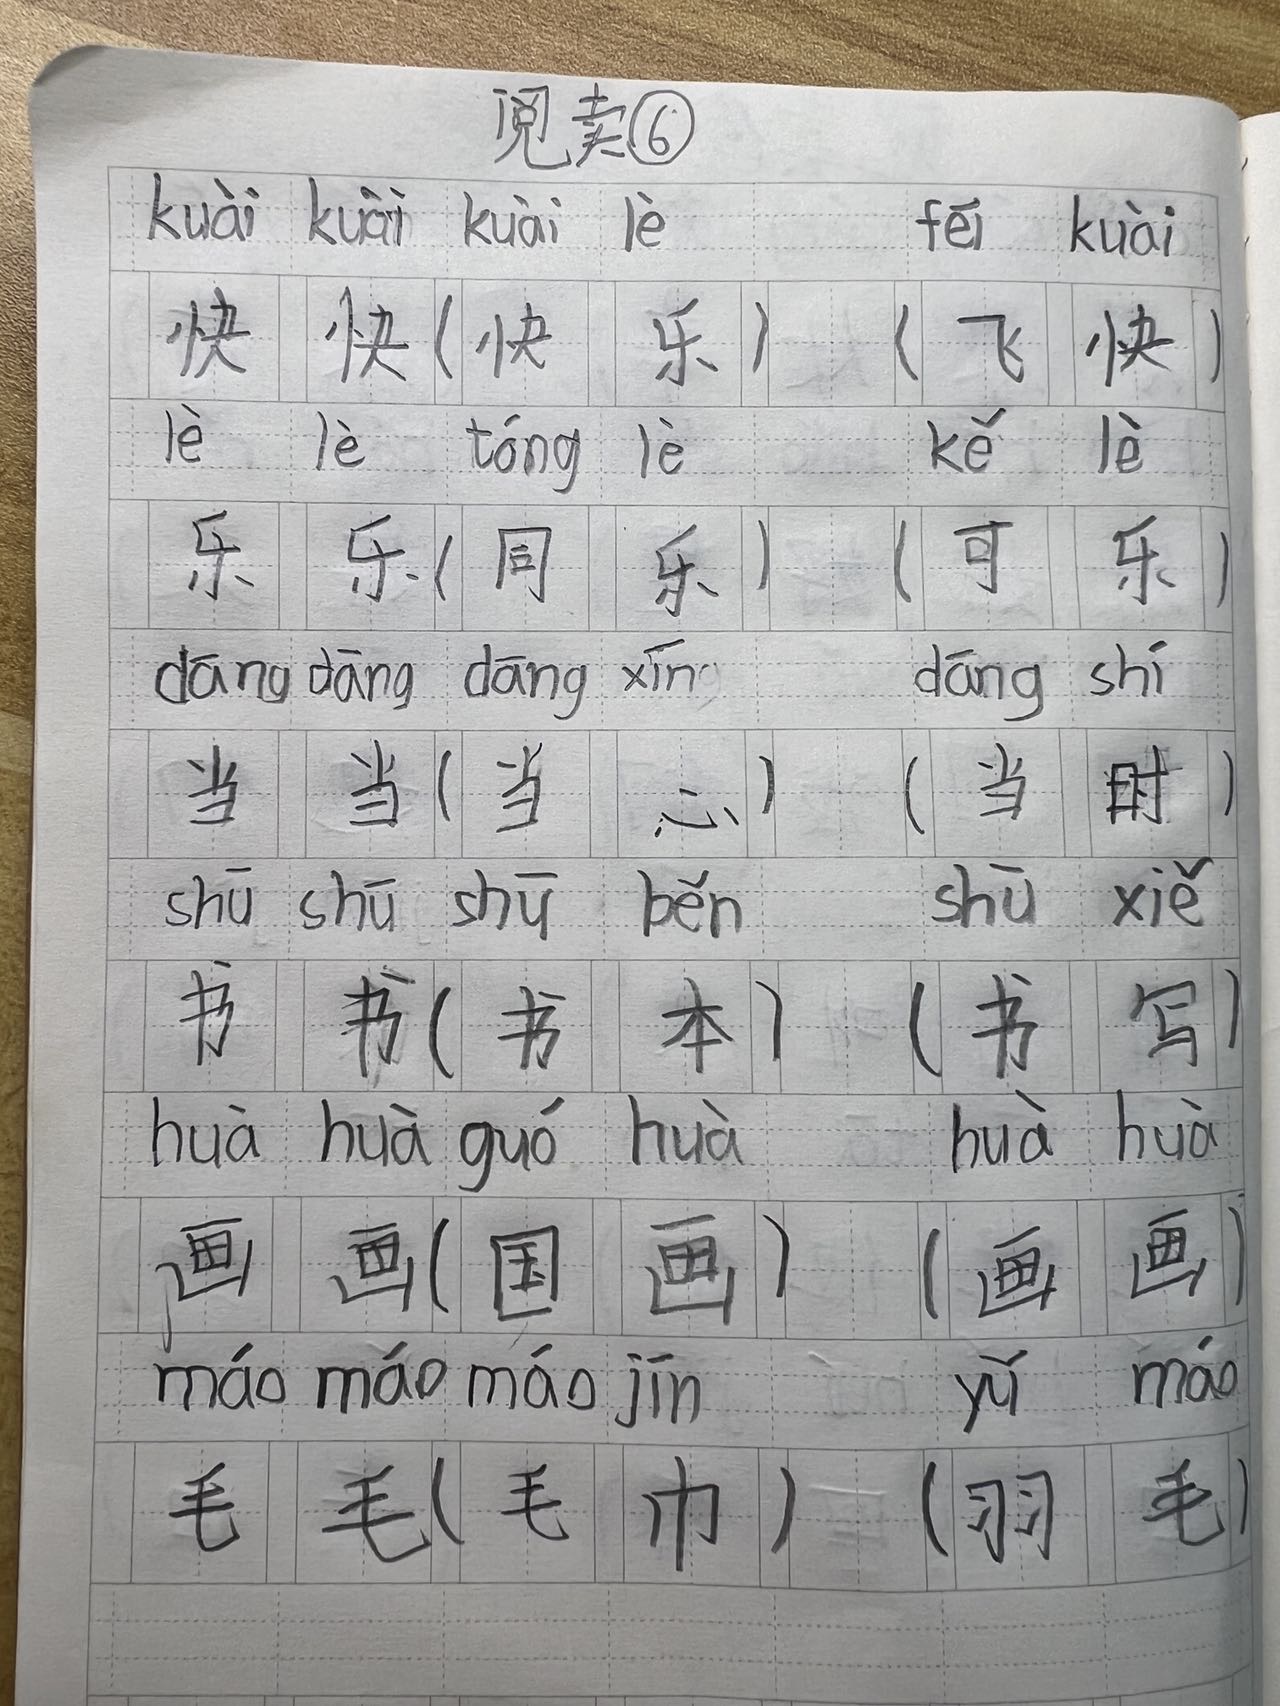 阅卖⑥
kuài kuài kuài lè fēi kuài
快 快(快 乐) (飞 快)
lè lè tóng lè kě lè
乐 乐(同 乐) (可 乐)
dāng dāng dāng xīn dāng shí
当 当(当 心) (当 时)
shū shū shū běn shū xiě
书 书(书 本) (书 写)
huà huà guó huà huà huà
画 画(国 画) (画 画)
máo máo máo jīn yǔ máo
毛 毛(毛 巾) (羽 毛)